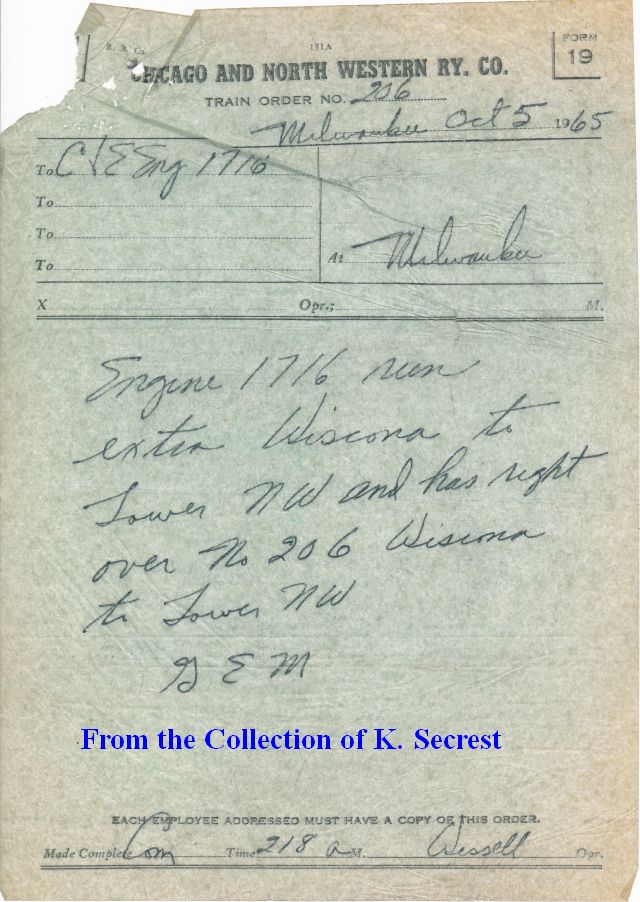 R. B. Co.
151A
FORM
19
CHICAGO AND NORTH WESTERN RY. CO.
TRAIN ORDER NO. 206
Milwaukee Oct 5 1965
To C & E Eng 1716
To
To
To
At Milwaukee
X Opr.; M.
Engine 1716 run
extra Wiscona to
Tower NW and has right
over No 206 Wiscona
to Tower NW
G E M
From the Collection of K. Secrest
EACH EMPLOYEE ADDRESSED MUST HAVE A COPY OF THIS ORDER.
Made Complete Com Time 218 a M. Wessell Opr.